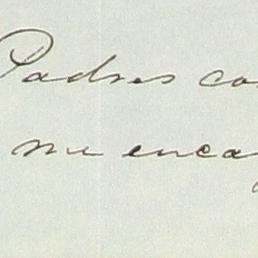 Padres co
me enca